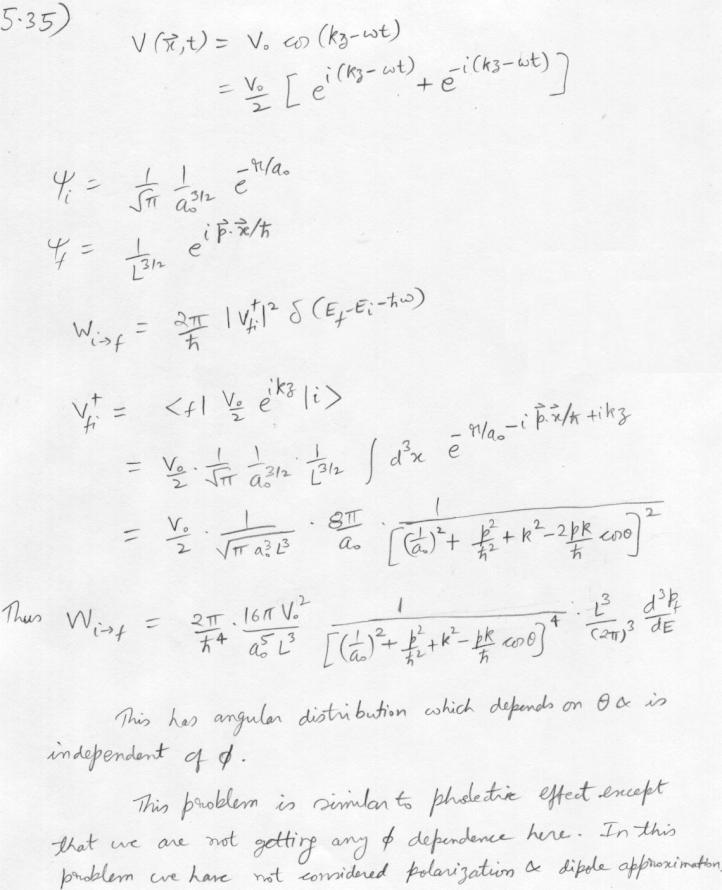 5.35)
V(x⃗,t) = V₀ cos(kz-ωt)
= V₀/2 [ e^{i(kz-ωt)} + e^{-i(kz-ωt)} ]
ψᵢ = 1/√π 1/a₀^{3/2} e^{-r/a₀}
ψ_f = 1/L^{3/2} e^{i p⃗·x⃗/ħ}
W_{i→f} = 2π/ħ |V⁺_{fi}|² δ(E_f-E_i-ħω)
V⁺_{fi} = <f| V₀/2 e^{ikz} |i>
= V₀/2 · 1/√π 1/a₀^{3/2} · 1/L^{3/2} ∫ d³x e^{-r/a₀ - i p⃗·x⃗/ħ + ikz}
= V₀/2 · 1/√(π a₀³ L³) · 8π/a₀ · 1/[(1/a₀)² + p²/ħ² + k² - 2pk/ħ cosθ]²
Thus W_{i→f} = 2π/ħ⁴ · 16π V₀²/(a₀⁵ L³) 1/[(1/a₀)² + p²/ħ² + k² - pk/ħ cosθ]⁴ · L³/(2π)³ d³p_f/dE
This has angular distribution which depends on θ & is
independent of φ.
This problem is similar to photoelectric effect except
that we are not getting any φ dependence here. In this
problem we have not considered polarization & dipole approximation